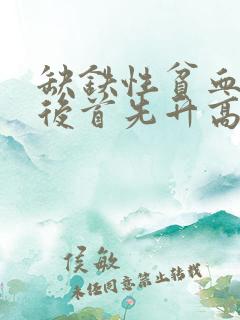 缺铁性贫血
后首先升高
侯敏
未经同意禁止转载